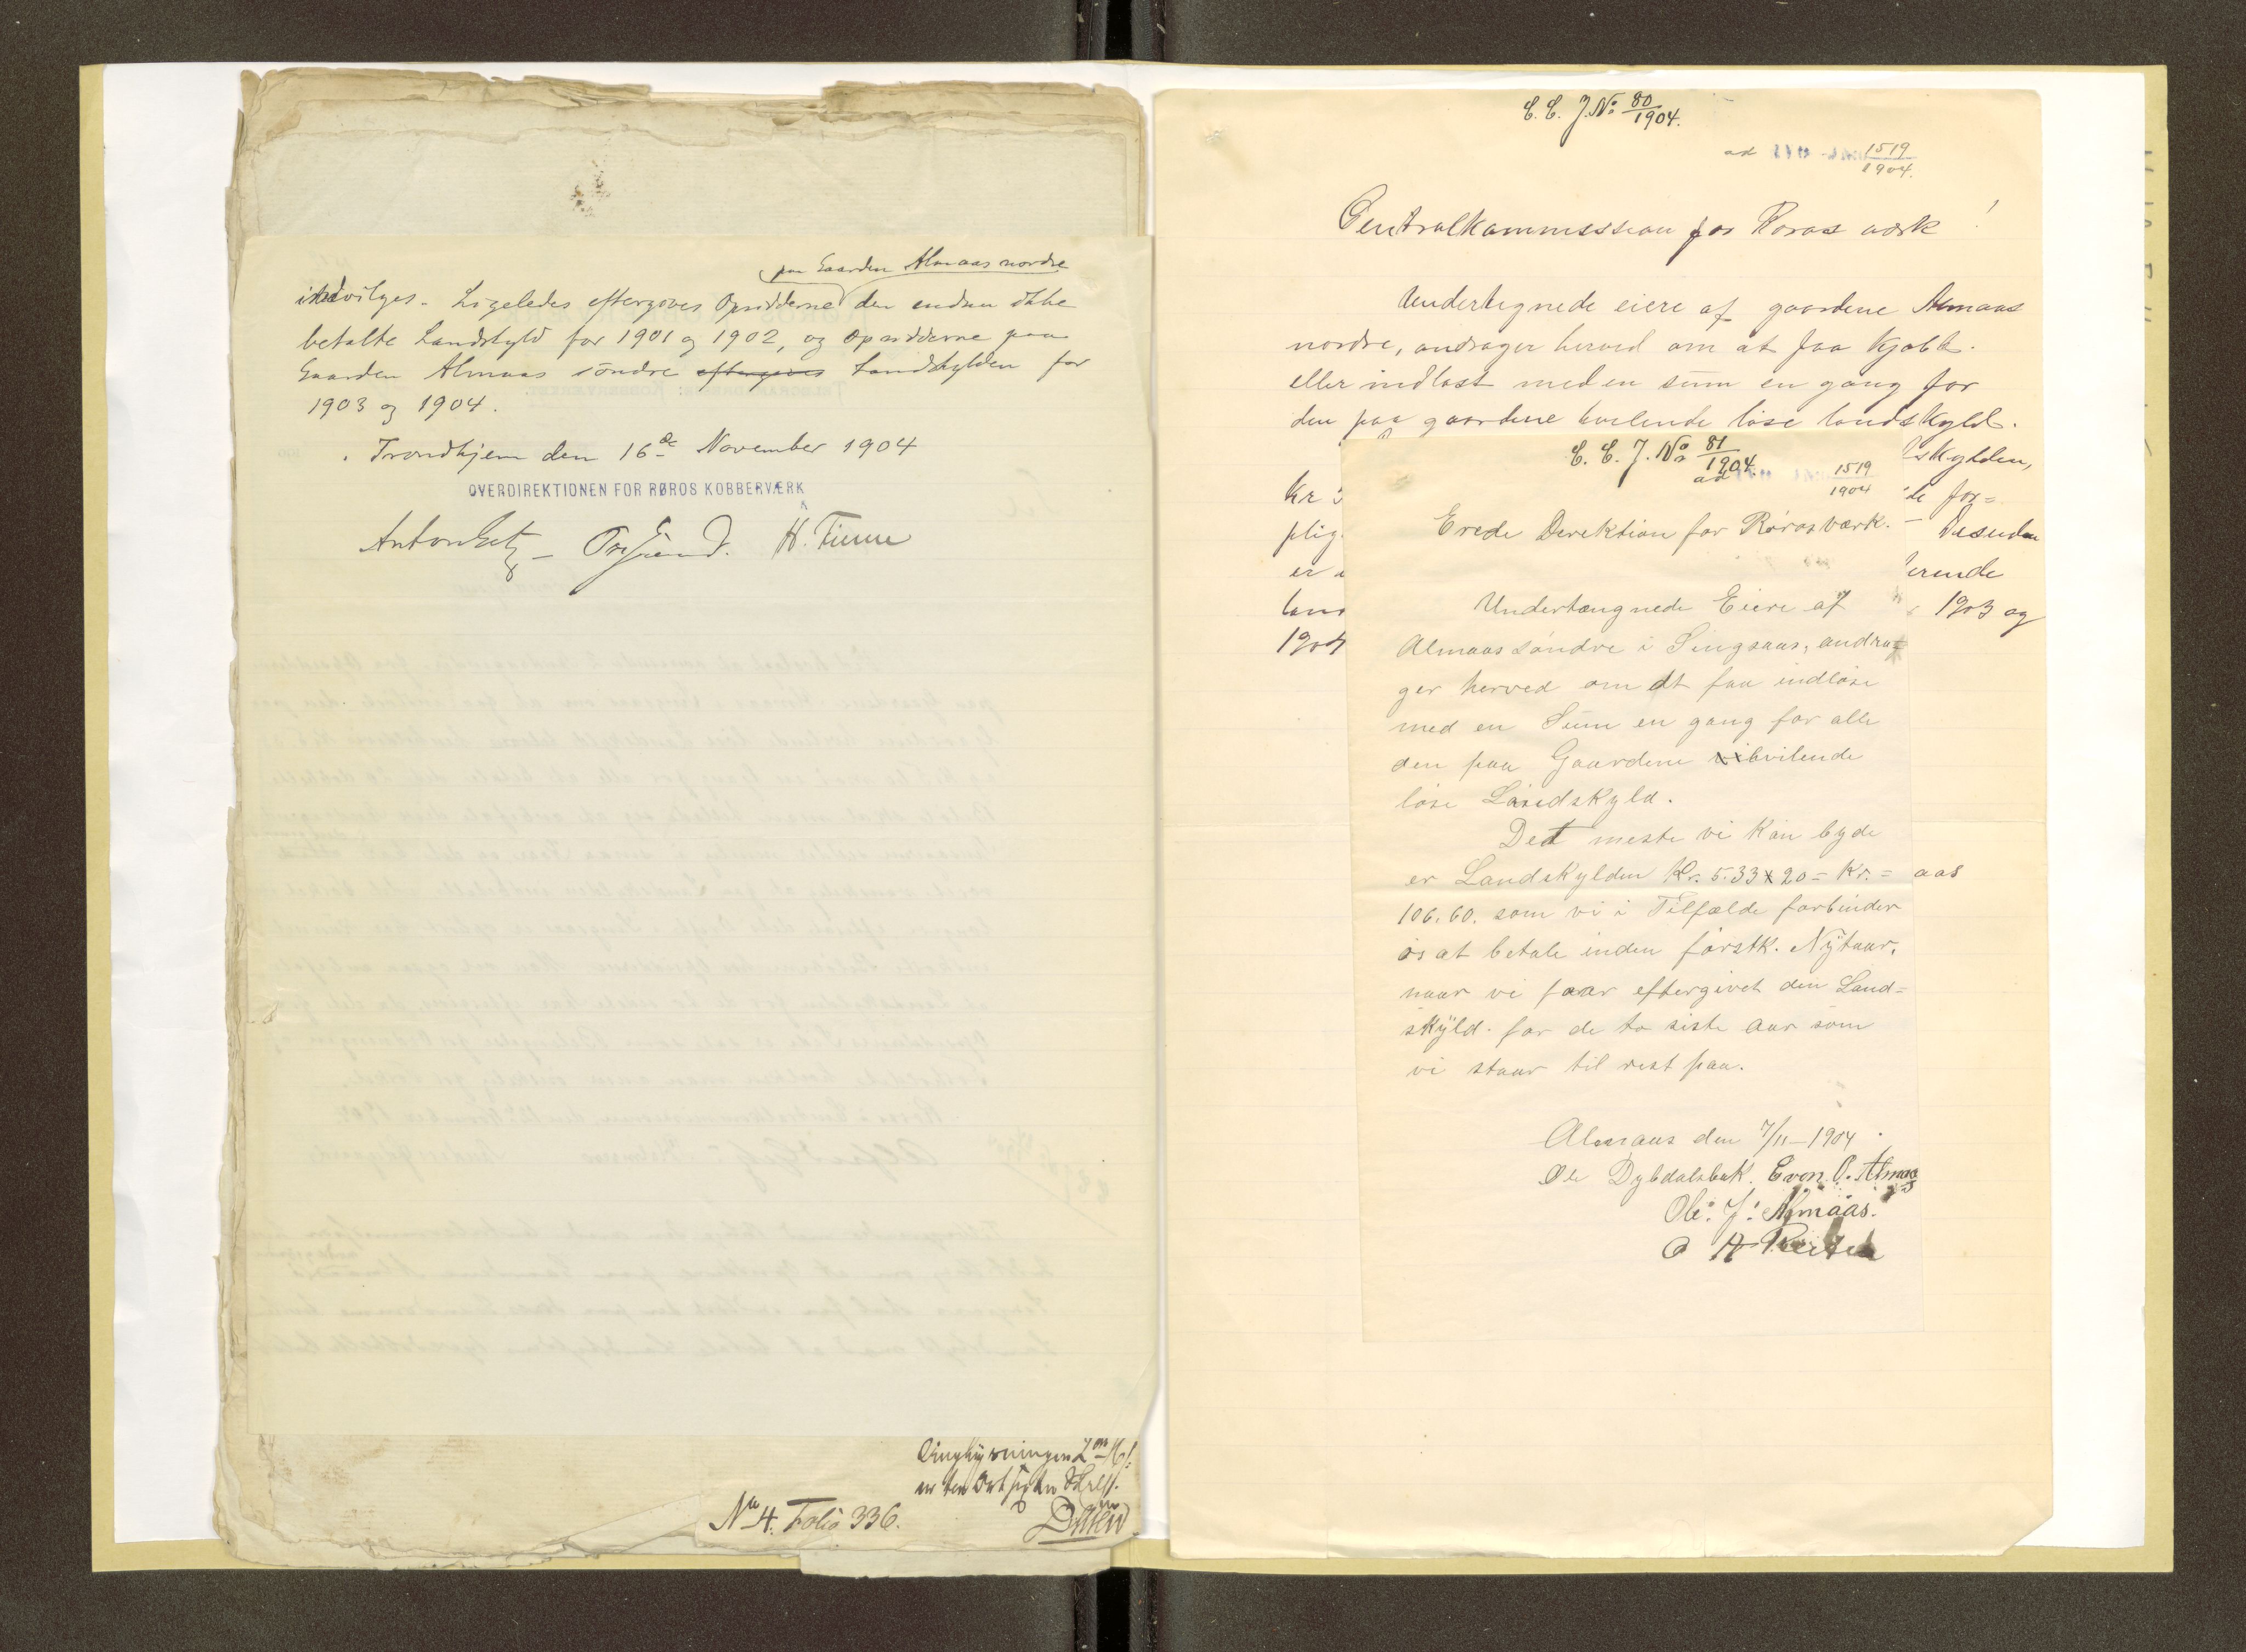 paa Gaarden Almaas nordre
indvilges. Ligeledes eftergives Opsidderne den endnu ikke
betalte Landskyld for 1901 og 1902, og Opsidderne paa
Gaarden Almaas söndre eftergives Landskylden for
1903 og 1904.
Trondhjem den 16de November 1904
OVERDIREKTIONEN FOR RØROS KOBBERVÆRK
H. Finne
No 4. Folio 336.
C. C. J. No 80/1904.
ad 1519/1904.
Centralkommission for Röros værk!
Undertegnede eiere af gaardene Almaas
nordre, andrager herved om at faa kjöbt
eller indlöst med en süm en gang for
den paa gaardene hvilende löse landskyld.
lskylden,
Kr
de for=
plig
Desuden
er
erende
lans
1903 og
1904
aas
C. C. J. No 81/1904
ad 1519/1904
Erede Direktion for Rörosværk.
Undertængnede Eiere af
Almaas söndre i Singsaas, andra=
ger herved om at faa indlöse
med en Süm en gang for alle
den paa Gaardene hvilende
löse Landskyld.
Det meste vi kan byde
er Landskylden Kr. 5.33 x 20 = Kr. =
106.60. som vi i Tilfælde forbinder
os at betale inden förstk. Nÿtaar,
naar vi faar eftergivet den Land=
skÿld. for de to siste Aar som
vi staar til rest paa.
Almaas den 7/11-1904.
Ole Dybdalsbak. Even O. Almaas
Ole. J. Almaas.